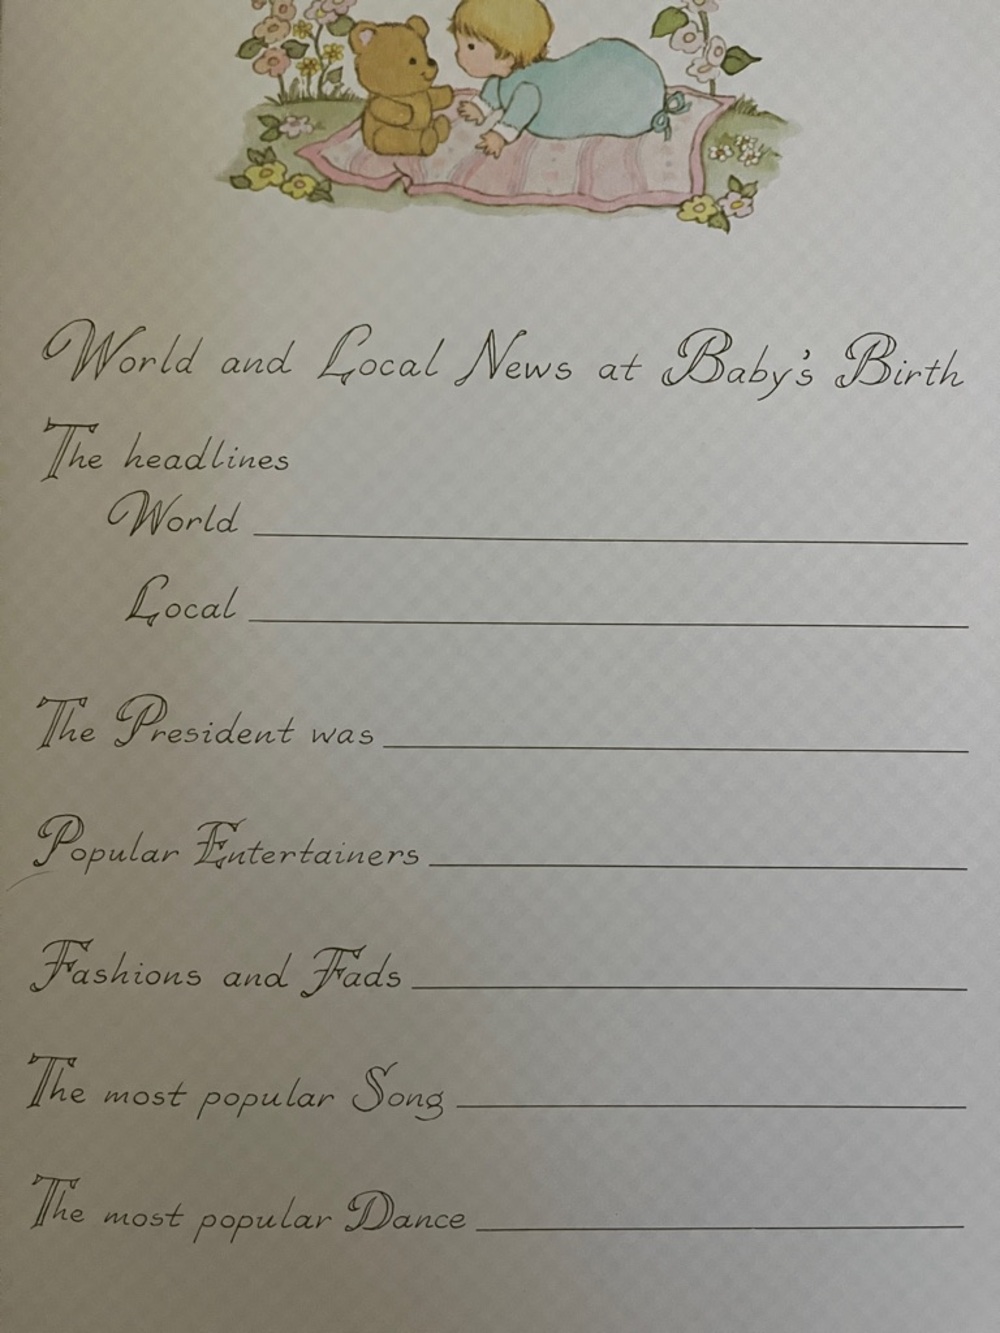 World and Local News at Baby's Birth
The headlines
World
Local
The President was
Popular Entertainers
Fashions and Fads
The most popular Song
The most popular Dance